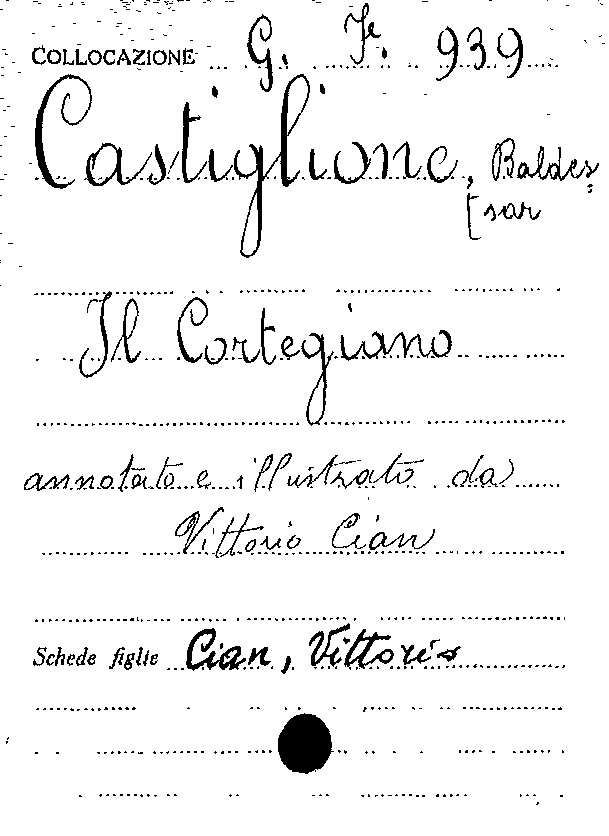 COLLOCAZIONE G. F. 939
Castiglione, Baldes=
[sar
Il Cortegiano
annotato e illustrato da
Vittorio Cian
Schede figlie Cian, Vittorio